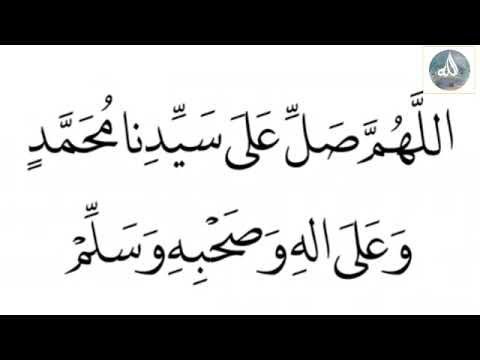 اللَّهُمَّ صَلِّ عَلَى سَيِّدِنَا مُحَمَّدٍ
وَعَلَى الهِ وَصَحْبِهِ وَسَلِّمْ
الله